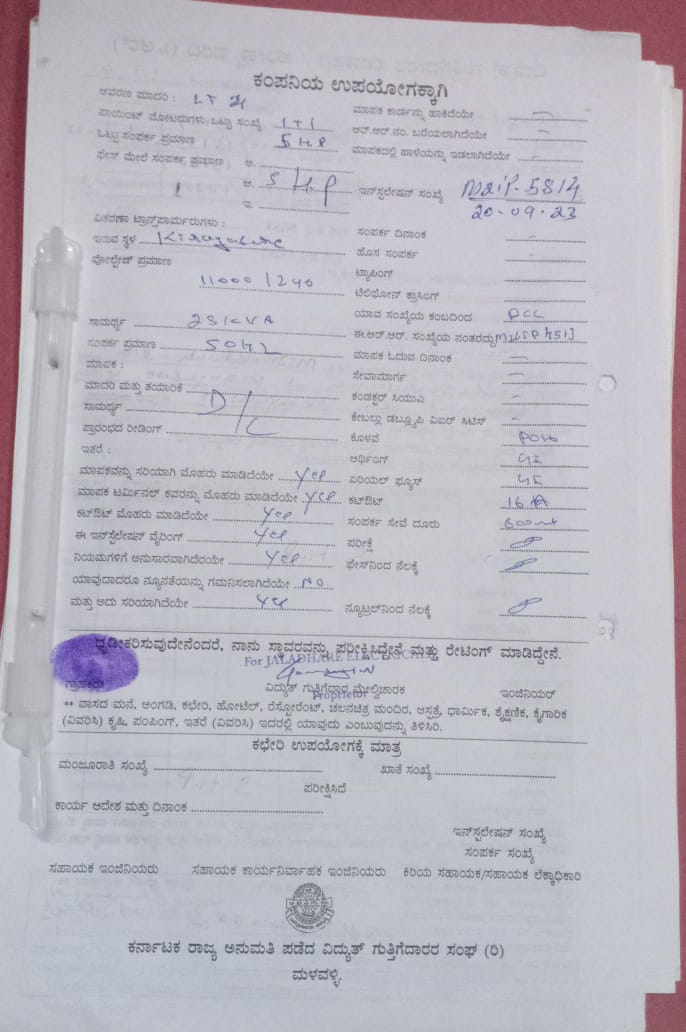 ಕಂಪನಿಯ ಉಪಯೋಗಕ್ಕಾಗಿ
ಆವರಣ ಮಾದರಿ : LT 4 ಮಾಪಕ ಕಾರ್ಡನ್ನು ಹಾಕಿದೆಯೇ —
ಪಾಯಿಂಟ್ ಮೋಟರುಗಳು/ಒಟ್ಟು ಸಂಖ್ಯೆ 1+1 ಆರ್.ಆರ್.ನಂ. ಬರೆಯಲಾಗಿದೆಯೇ —
ಒಟ್ಟು ಸಂಪರ್ಕ ಪ್ರಮಾಣ 5 HP ಮಾಪಕದಲ್ಲಿ ಹಾಳೆಯನ್ನು ಇಡಲಾಗಿದೆಯೇ —
ಫೇಸ್ ಮೇಲೆ ಸಂಪರ್ಕ ಪ್ರಮಾಣ ಅ.
ಆ. 5 HP ಇನ್ಸ್ಟಲೇಷನ್ ಸಂಖ್ಯೆ 5814
ಇ. 20-09-23
ವಿಕರಣಾ ಟ್ರಾನ್ಸ್‌ಪಾರ್ಮರುಗಳು : ಸಂಪರ್ಕ ದಿನಾಂಕ —
ಇರುವ ಸ್ಥಳ ಹೊಸ ಸಂಪರ್ಕ —
ವೋಲ್ಟೇಜ್ ಪ್ರಮಾಣ ಟ್ಯಾಪಿಂಗ್
11000 / 240 ಟೆಲಿಫೋನ್ ಕ್ರಾಸಿಂಗ್
ಯಾವ ಸಂಖ್ಯೆಯ ಕಂಬದಿಂದ PCC
ಸಾಮರ್ಥ್ಯ 25 KVA ಈ.ಆರ್.ಆರ್. ಸಂಖ್ಯೆಯ ನಂತರದ್ದು
ಸಂಪರ್ಕ ಪ್ರಮಾಣ 50HZ ಮಾಪಕ ಓದುವ ದಿನಾಂಕ —
ಮಾಪಕ : ಸೇವಾಮಾರ್ಗ —
ಮಾದರಿ ಮತ್ತು ತಯಾರಿಕೆ D/C ಕಂಡಕ್ಟರ್ ಸಿಯುಎ —
ಸಾಮರ್ಥ್ಯ ಕೇಬಲ್ಲು ಡಬ್ಲ್ಯೂಪಿ ವಿಐಆರ್ ಸಿಟಿಸ್ —
ಪ್ರಾರಂಭದ ರೀಡಿಂಗ್ ಕೊಳವೆ
ಇತರೆ : ಆರ್ಥಿಂಗ್
ಮಾಪಕವನ್ನು ಸರಿಯಾಗಿ ಮೊಹರು ಮಾಡಿದೆಯೇ Yes ಏರಿಯಲ್ ಫ್ಯೂಸ್
ಮಾಪಕ ಟರ್ಮಿನಲ್ ಕವರನ್ನು ಮೊಹರು ಮಾಡಿದೆಯೇ Yes ಕಟ್‌ಔಟ್ 16 A
ಕಟ್‌ಔಟ್ ಮೊಹರು ಮಾಡಿದೆಯೇ Yes ಸಂಪರ್ಕ ಸೇವೆ ದೂರು
ಈ ಇನ್‌ಸ್ಟೆಲೇಷನ್ ವೈರಿಂಗ್ Yes ಪರೀಕ್ಷೆ
ನಿಯಮಗಳಿಗೆ ಅನುಸಾರವಾಗಿದೆರಯೇ Yes ಫೇಸ್‌ನಿಂದ ನೆಲಕ್ಕೆ
ಯಾವುದಾದರೂ ನ್ಯೂನತೆಯನ್ನು ಗಮನಿಸಲಾಗಿದೆಯೇ NO
ಮತ್ತು ಅದು ಸರಿಯಾಗಿದೆಯೇ Yes ನ್ಯೂಟ್ರಲ್‌ನಿಂದ ನೆಲಕ್ಕೆ
ಧೃಡೀಕರಿಸುವುದೇನೆಂದರೆ, ನಾನು ಸ್ಥಾವರವನ್ನು ಪರೀಕ್ಷಿಸಿದ್ದೇನೆ ಮತ್ತು ರೇಟಿಂಗ್ ಮಾಡಿದ್ದೇನೆ.
For JALADHARE ELECTRICALS
ಗ್ರಾಹಕರು ವಿದ್ಯುತ್ ಗುತ್ತಿಗೆದಾರ ಮೇಲ್ವಿಚಾರಕ ಇಂಜಿನಿಯರ್
Proprietor
** ವಾಸದ ಮನೆ, ಅಂಗಡಿ, ಕಛೇರಿ, ಹೋಟೆಲ್, ರೆಸ್ಟೋರೆಂಟ್, ಚಲನಚಿತ್ರ ಮಂದಿರ, ಆಸ್ಪತ್ರೆ, ಧಾರ್ಮಿಕ, ಶೈಕ್ಷಣಿಕ, ಕೈಗಾರಿಕ
(ವಿವರಿಸಿ) ಕೃಷಿ, ಪಂಪಿಂಗ್, ಇತರೆ (ವಿವರಿಸಿ) ಇದರಲ್ಲಿ ಯಾವುದು ಎಂಬುವುದನ್ನು ತಿಳಿಸಿರಿ.
ಕಛೇರಿ ಉಪಯೋಗಕ್ಕೆ ಮಾತ್ರ
ಮಂಜೂರಾತಿ ಸಂಖ್ಯೆ ಖಾತೆ ಸಂಖ್ಯೆ
ಪರೀಕ್ಷಿಸಿದೆ
ಕಾರ್ಯ ಆದೇಶ ಮತ್ತು ದಿನಾಂಕ
ಇನ್‌ಸ್ಟಲೇಷನ್ ಸಂಖ್ಯೆ
ಸಂಪರ್ಕ ಸಂಖ್ಯೆ
ಸಹಾಯಕ ಇಂಜಿನಿಯರು ಸಹಾಯಕ ಕಾರ್ಯನಿರ್ವಾಹಕ ಇಂಜಿನಿಯರು ಕಿರಿಯ ಸಹಾಯಕ/ಸಹಾಯಕ ಲೆಕ್ಕಾಧಿಕಾರಿ
ಕರ್ನಾಟಕ ರಾಜ್ಯ ಅನುಮತಿ ಪಡೆದ ವಿದ್ಯುತ್ ಗುತ್ತಿಗೆದಾರರ ಸಂಘ (ರಿ)
ಮಳವಳ್ಳಿ.